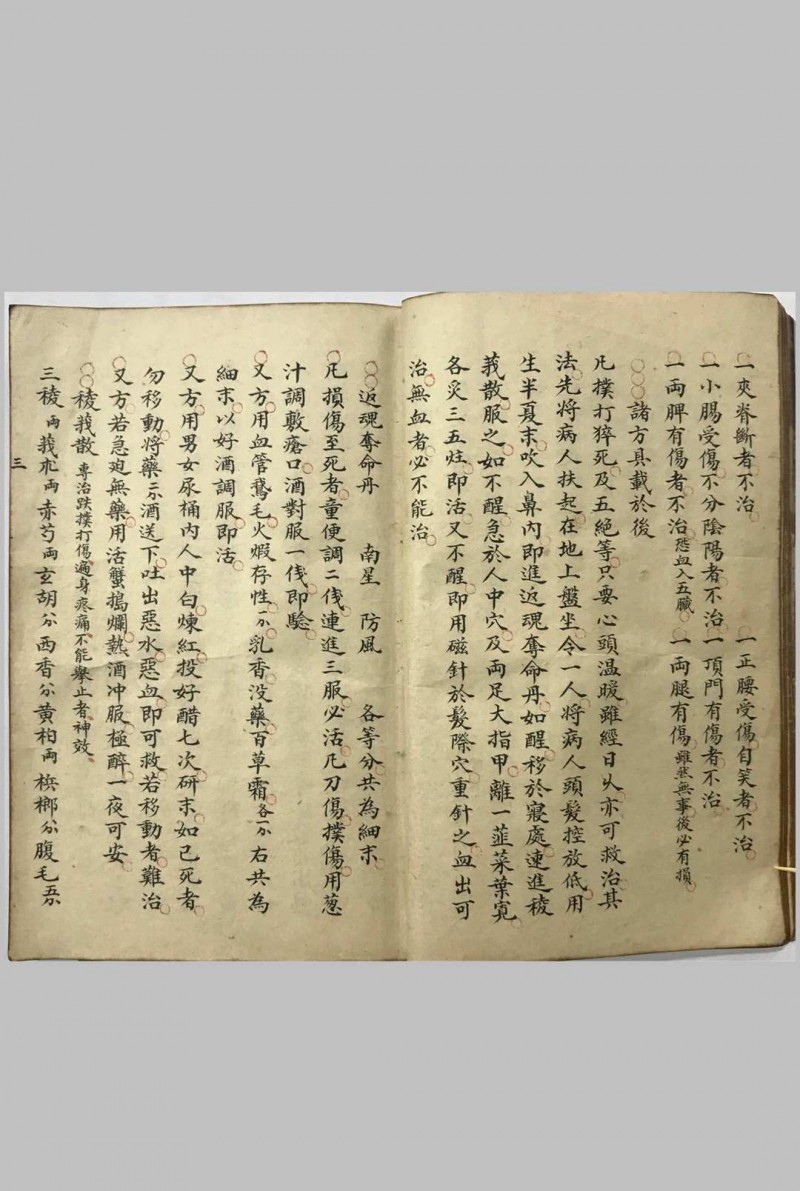 一夾脊斷者不治 一正腰受傷自笑者不治
一小腸受傷不分陰陽者不治一頂門有傷者不治
一兩脾有傷者不治恐血入五臟一兩腿有傷雖然無事後必有損
諸方具載於後
凢撲打猝死及五絕等只要心頭溫暖雖經日久亦可救治其
法先將病人扶起在地上盤坐令一人將病人頭髮控放低用
生半夏末吹入鼻內即進返魂奪命丹如醒移於寢處速進稜
莪散服之如不醒急於人中穴及兩足大指甲離一韮菜葉寬
各炙三五炷即活又不醒即用磁針於髮際穴重針之血出可
治無血者必不能治
返魂奪命丹 南星 防風 各等分共為細末
凢損傷至死者童便調二戔連進三服必活凢刀傷撲傷用葱
汁調敷瘡口酒對服一戔即驗
又方用血管鵞毛火煆存性一分乳香没藥百草霜各一分右共為
細末以好酒調服即活
又方用男女尿桶內人中白煉紅投好醋七次研末如已死者
勿移動將藥二分酒送下吐出惡水惡血即可救若移動者難治
又方若急廹無藥用活蟹搗爛熱酒冲服極醉一夜可安
稜莪散專治跌撲打傷遍身疼痛不能舉止者神效
三稜兩莪朮兩赤芍兩玄胡分西香分黃柏兩梹榔分腹毛五分
三